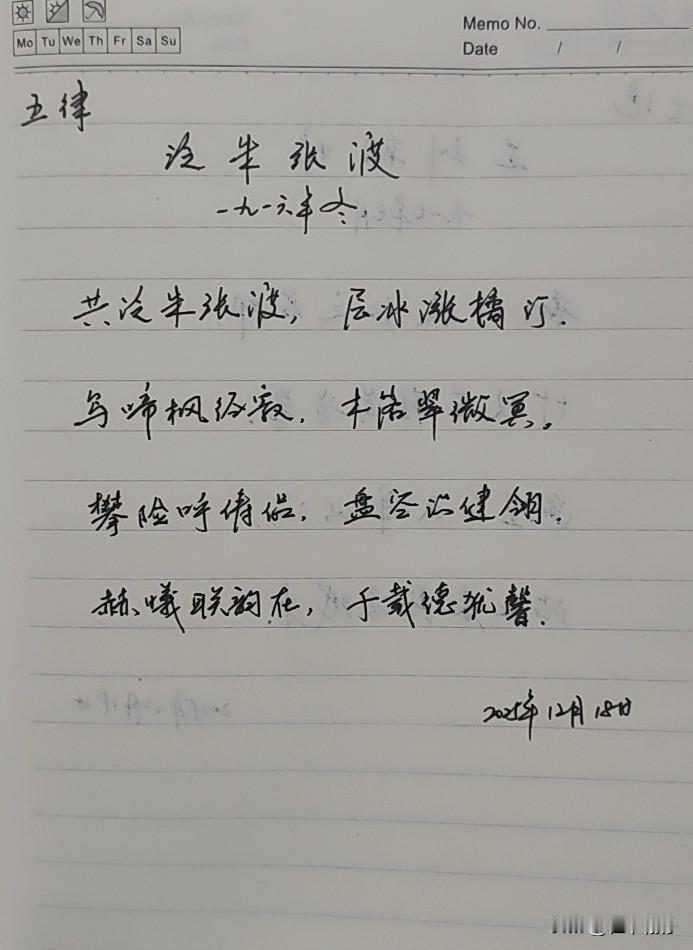 Mo Tu We Th Fr Sa Su
Memo No.
Date / /
五律
泛朱张渡
一九一六年冬
共泛朱张渡，层冰涨橘汀.
鸟啼枫径寂，木落翠微冥。
攀险呼俦侣，盘空识健翎.
赫曦联韵在，千载德犹馨.
2025年12月18日